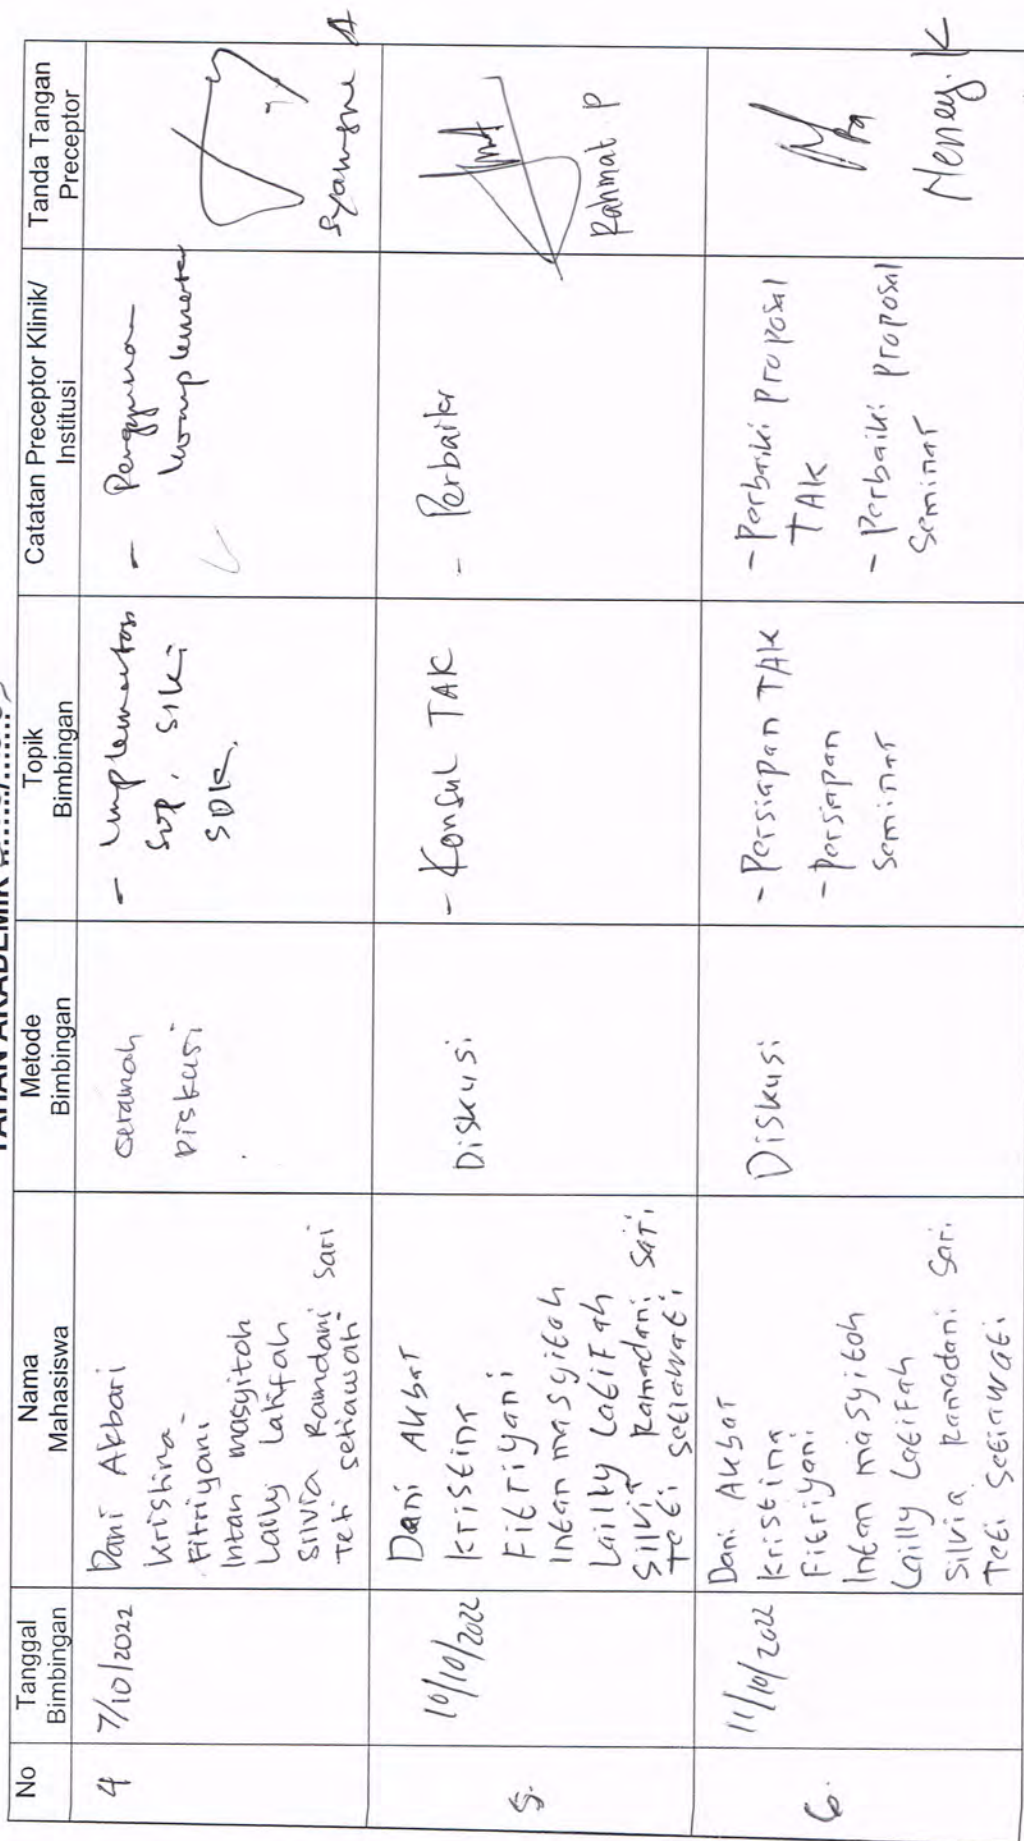 TAHAN AKADEMIK
No
Tanggal
Bimbingan
Nama
Mahasiswa
Metode
Bimbingan
Topik
Bimbingan
Catatan Preceptor Klinik/
Institusi
Tanda Tangan
Preceptor
4
7/10/2022
Dani Akbari
Kristina
Fitriyani
Intan masyitoh
Lailly Latifah
Silvia Ramdani Sari
Teti setiawati
ceramah
Diskusi
- Implementasi
SOP, SIKI
SDKI
- Penggunaan
komplementer
5.
10/10/2022
Dani Akbar
Kristina
Fitriyani
Intan masyitoh
Lailly Latifah
Silvia Ramadani Sari
Teti Setiawati
Diskusi
- Konsul TAK
- Perbaiki
Rahmat P
6.
11/10/2022
Dani Akbar
Kristina
Fitriyani
Intan masyitoh
Lailly Latifah
Silvia Ramadani Sari
Teti Setiawati
Diskusi
- Persiapan TAK
- persiapan
Seminar
- Perbaiki Proposal
TAK
- Perbaiki Proposal
Seminar
Neneng. K